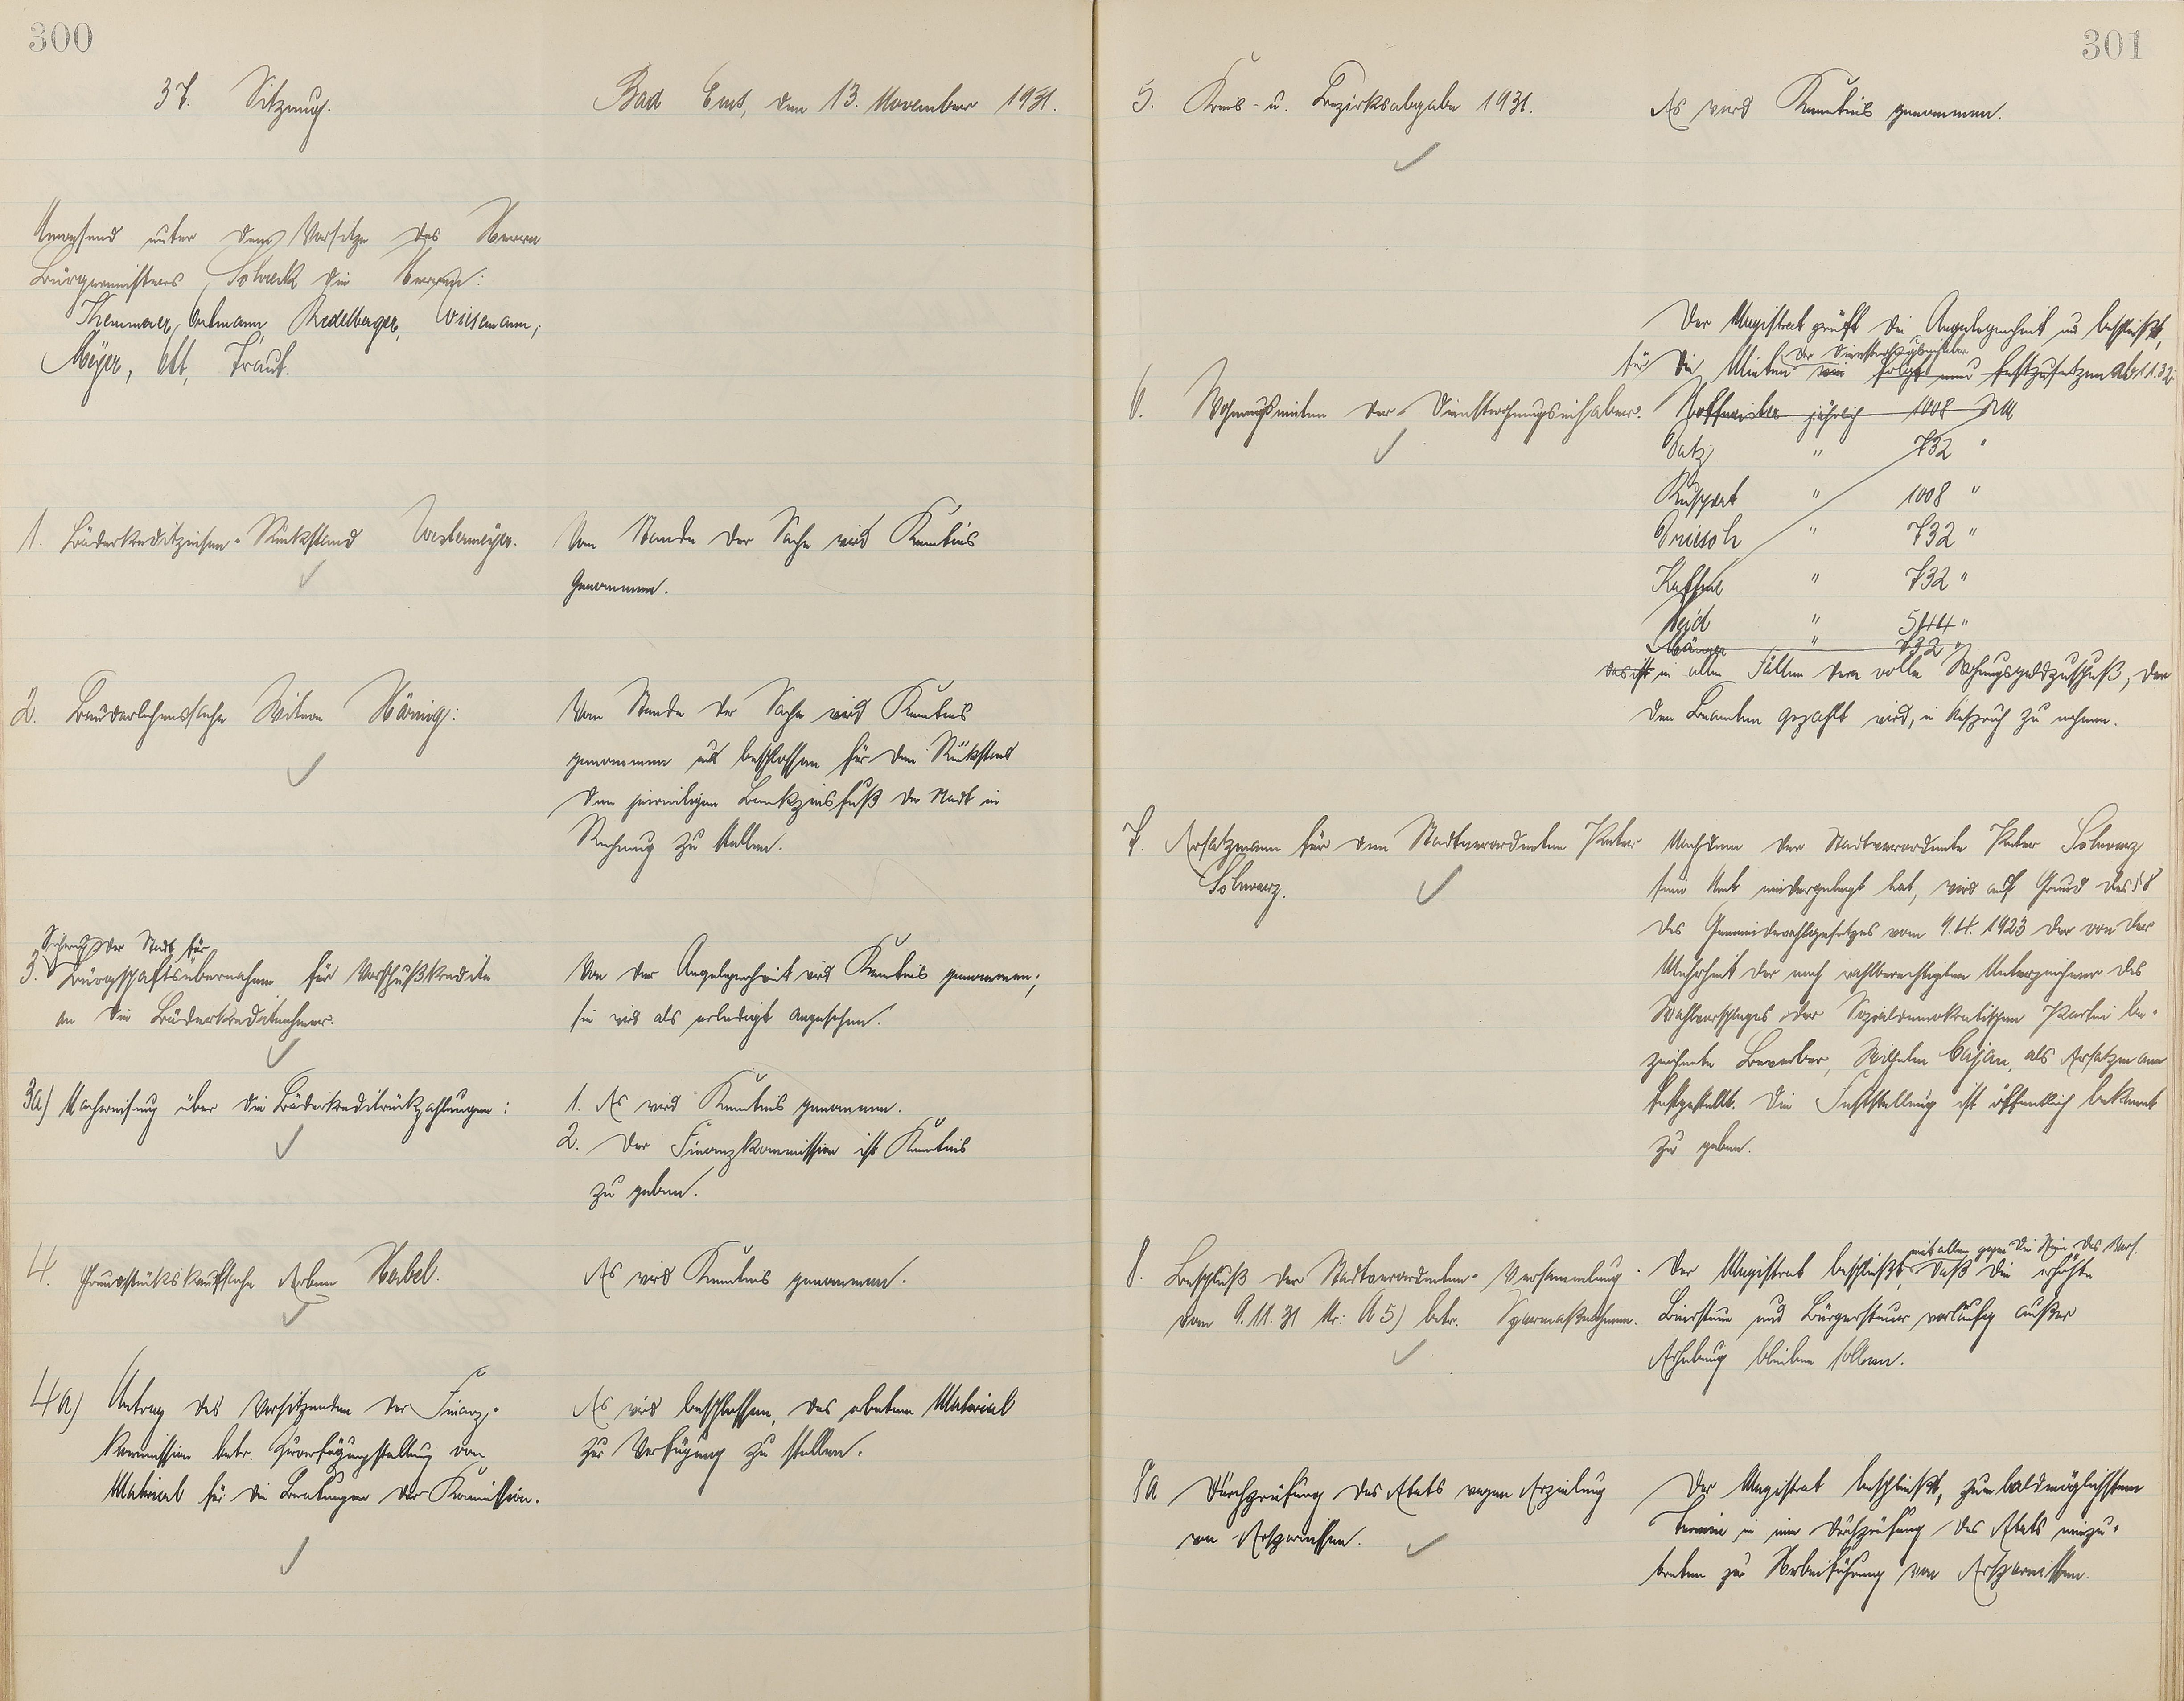 300
37. Sitzung.
Bad Ems, den 13. November 1931.
Anwesend unter dem Vorsitze des Herrn
Bürgermeisters Schreck die Herren:
Themmer, Ortmann Redelberger, Wiesemann,
Meyer, Ott, Traut.
1. Bäderkreditzinsen-Rückstand Westermeyer.
Vom Stande der Sache wird Kenntnis
genommen.
2. Baudarlehenssache Witwe Hörnig:
Vom Stande der Sache wird Kenntnis
genommen und beschlossen für den Rückstand
den jeweiligen Bankzinsfuß der Stadt in
Rechnung zu stellen.
Sicherung der Stadt für
3. Bürgschaftsübernahme für Vorschußkredite
an die Bäderkreditnehmer.
Von der Angelegenheit wird Kenntnis genommen;
sie wird als erledigt angesehen.
3a) Nachweisung über die Bäderkreditrückzahlungen:
1. Es wird Kenntnis genommen.
2. Der Finanzkommission ist Kenntnis
zu geben.
4. Grundstückskaufsache Erben Habel.
Es wird Kenntnis genommen.
4a) Antrag des Vorsitzenden der Finanz-
kommission betr. Zurverfügungstellung von
Material für die Beratungen der Kommission.
Es wird beschlossen, das erbetene Material
zur Verfügung zu stellen.
301
5. Kreis- u. Bezirksabgabe 1931.
Es wird Kenntnis genommen.
6. Wohnungsmieten der Dienstwohnungsinhaber.
Der Magistrat prüft die Angelegenheit und beschließt,
der Dienstwohnungsinhaber
für die Mieten wie folgt neu festzusetzen ab 1.1.32
Hoffmeister jährlich 1008 RM
Datz " 732 "
Ruppert " 1008 "
Driesch " 732 "
" 732 "
" 544 "
" 732 "
das ist in allen Fällen der volle Wohnungsgeldzuschuß, der
den Beamten gezahlt wird, in Anspruch zu nehmen.
7. Ersatzmann für den Stadtverordneten Peter
Schwarz.
Nachdem der Stadtverordnete Peter Schwarz
sein Amt niedergelegt hat, wird auf Grund des § 8
des Gemeindewahlgesetzes vom 9.4.1923 der von der
Mehrheit der noch wahlberechtigten Unterzeichner des
Wahlvorschlages der Sozialdemokratischen Partei be-
zeichnete Bewerber, Wilhelm Cajan, als Ersatzmann
festgestellt. Die Feststellung ist öffentlich bekannt
zu geben.
8. Beschluß der Stadtverordneten-Versammlung
vom 9.11.31 Nr: A 5) betr. Sparmaßnahmen.
mit allen gegen die Stim. des Vors.
Der Magistrat beschließt, daß die erhöhte
Biersteuer und Bürgersteuer vorläufig außer
Erhebung bleiben sollen.
8a Durchprüfung des Etats wegen Erzielung
von Ersparnissen.
Der Magistrat beschließt, zum baldmöglichsten
Termin in eine Durchprüfung des Etats einzu-
treten zur Herbeiführung von Ersparnissen.